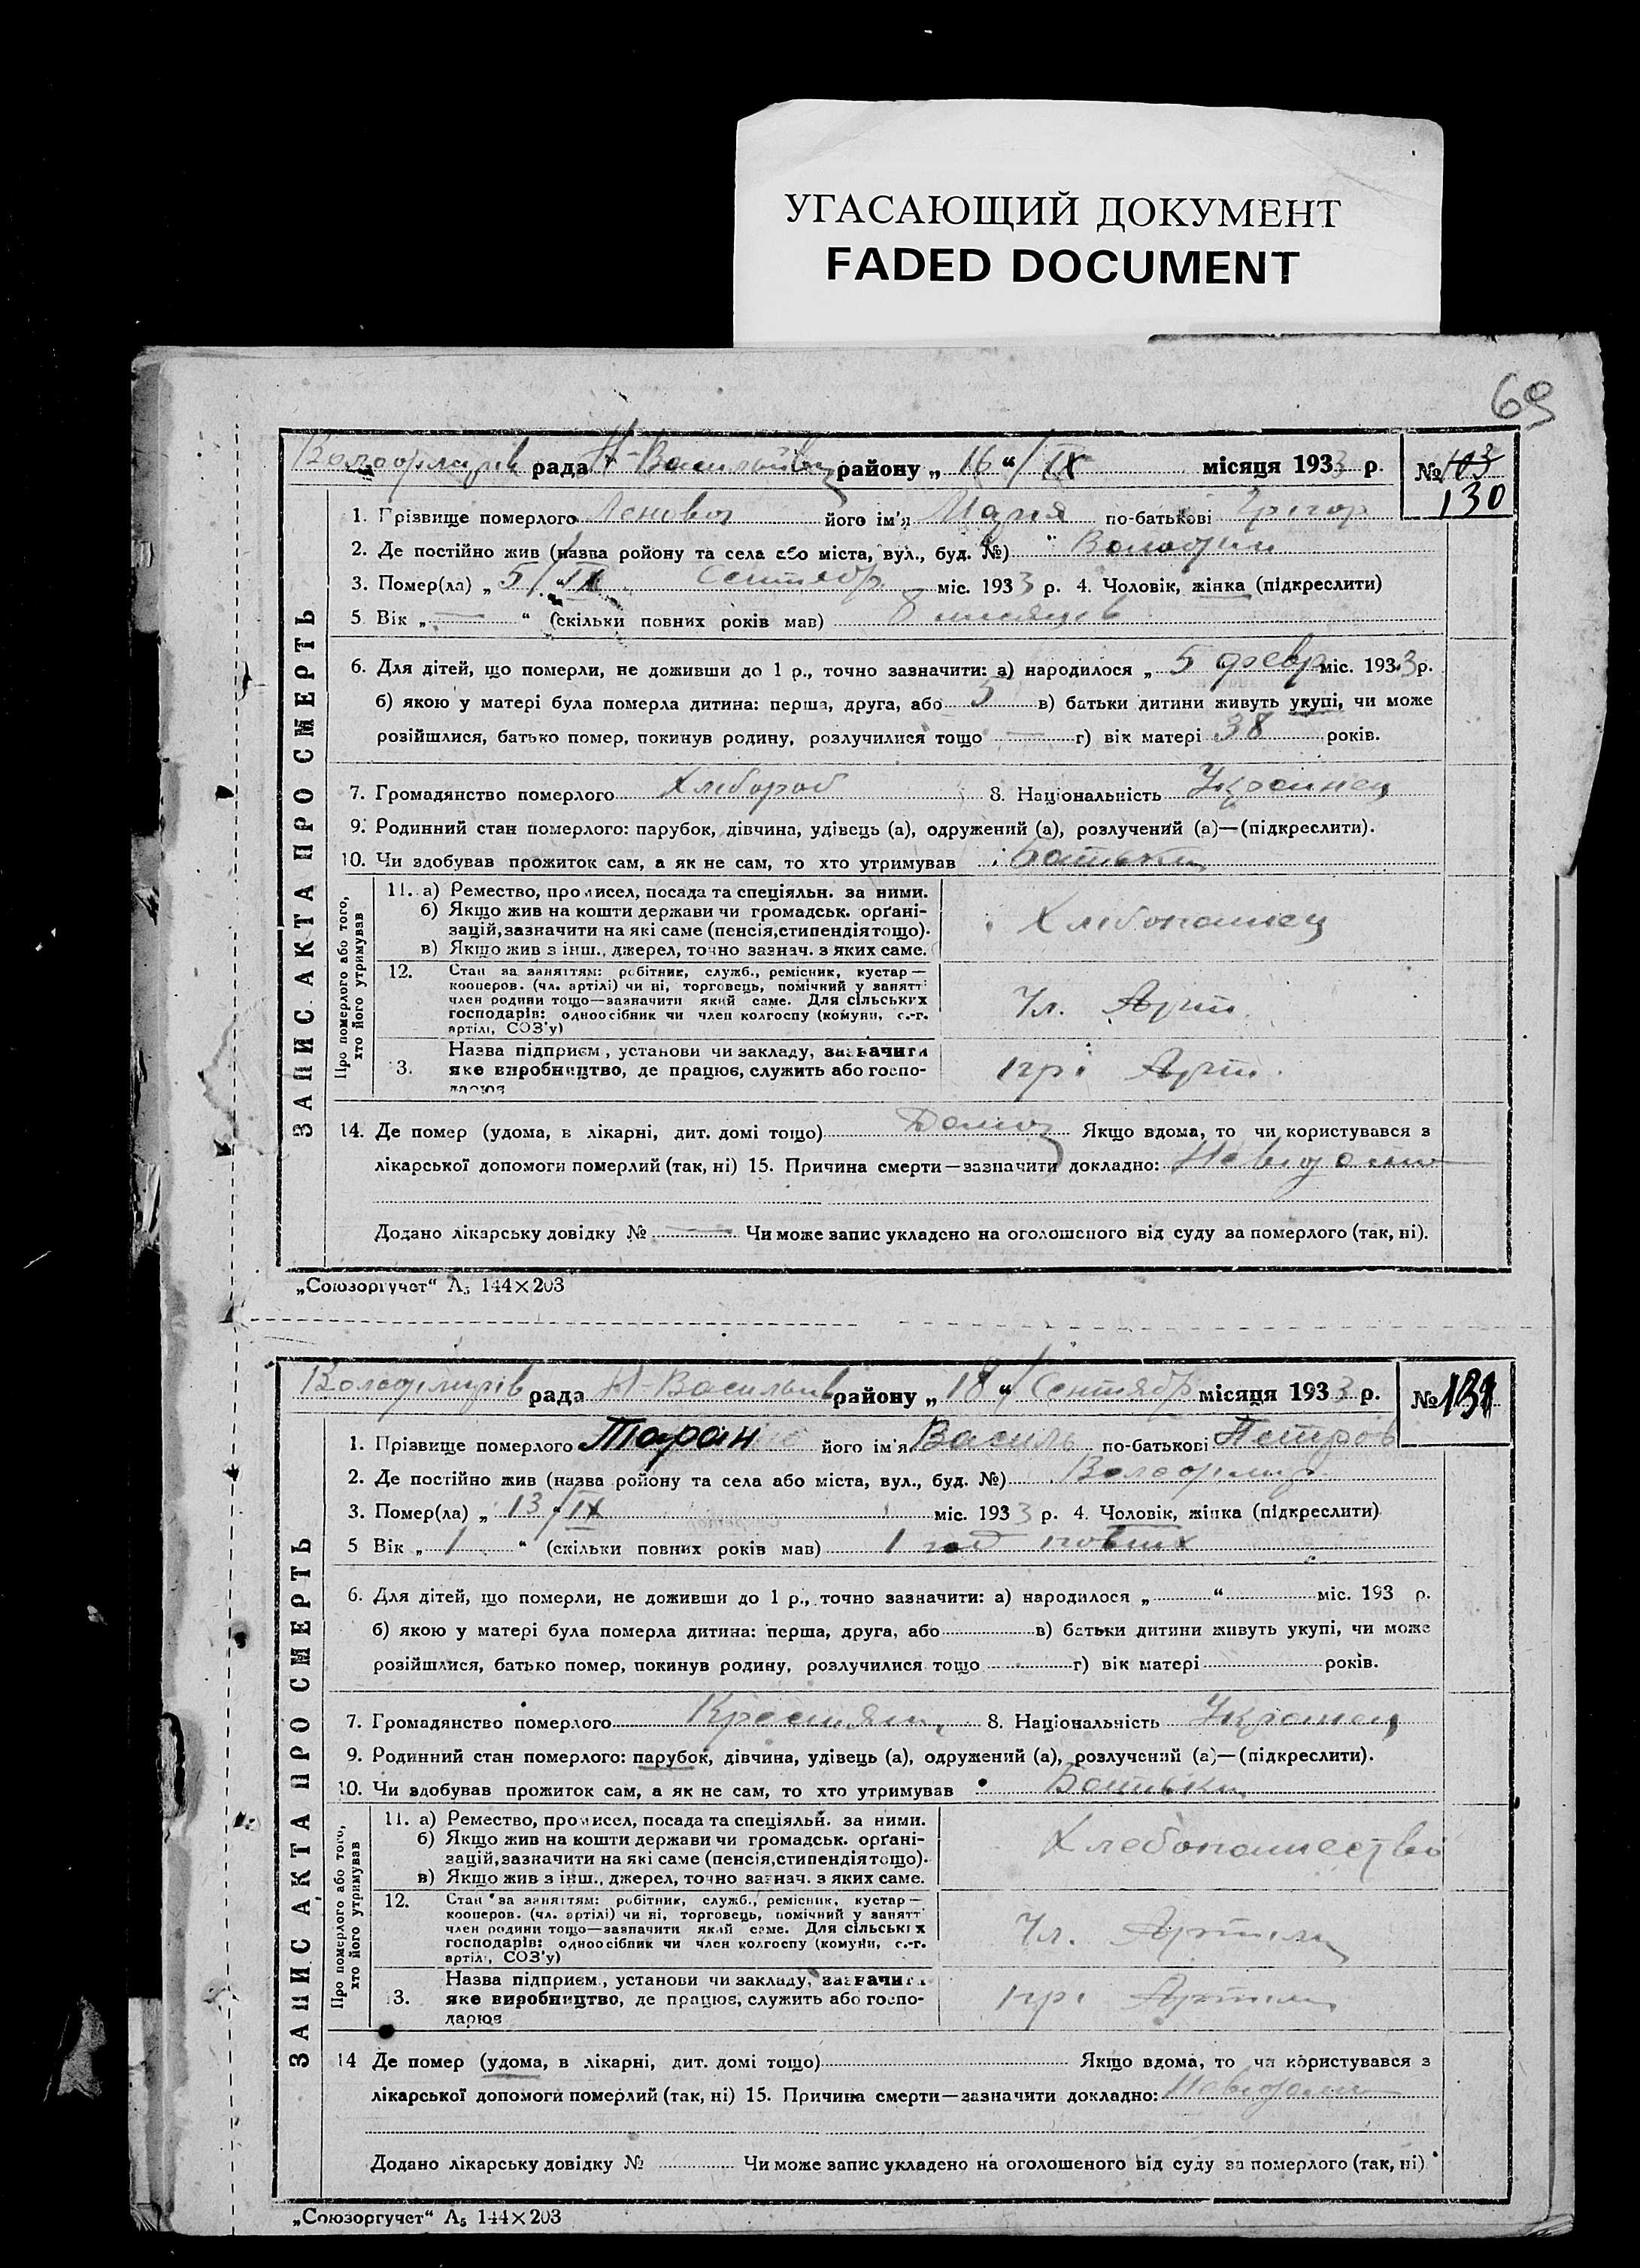 УГАСАЮЩИЙ ДОКУМЕНТ
FADED DOCUMENT
69
рада Н-Васильків району „ 16 “ / IX місяця 1933 р. № 103
130
ЗАПИС АКТА ПРО СМЕРТЬ
1. Прізвище померлого його ім'я Марія по-батькові Грігор
2. Де постійно жив (назва ройону та села або міста, вул., буд. №)
3. Помер(ла) „ 5 / IX Сентябр. міс. 1933 р. 4. Чоловік, жінка (підкреслити)
5 Вік „ — “ (скільки повних років мав) 8 месяцев
6. Для дітей, що померли, не доживши до 1 р., точно зазначити: а) народилося „ 5 февр міс. 1933 р.
б) якою у матері була померла дитина: перша, друга, або 5 в) батьки дитини живуть укупі, чи може
розійшлися, батько помер, покинув родину, розлучилися тощо — г) вік матері 38 років.
7. Громадянство померлого Хлебороб 8. Національність Украинец
9. Родинний стан померлого: парубок, дівчина, удівець (а), одружений (а), розлучений (а)—(підкреслити).
10. Чи здобував прожиток сам, а як не сам, то хто утримував Батьки
Про померлого або того, хто його утримував
11. а) Ремество, промисел, посада та спеціяльн. за ними.
б) Якщо жив на кошти держави чи громадськ. орґані-
зацій, зазначити на які саме (пенсія, стипендія тощо).
в) Якщо жив з інш., джерел, точно зазнач. з яких саме.
Хлебопашец
12. Стан за заняттям: робітник, служб., ремісник, кустар—
кооперов. (чл. артілі) чи ні, торговець, помічний у занятті
член родини тощо—зазначити який саме. Для сільських
господарів: одноосібник чи член колгоспу (комуни, с.-г.
артілі, СОЗ'у)
Чл. Арт.
3. Назва підприєм., установи чи закладу, зазначити
яке виробництво, де працює, служить або госпо-
дарює
при Арт.
14. Де помер (удома, в лікарні, дит. домі тощо) Дома Якщо вдома, то чи користувався з
лікарської допомоги померлий (так, ні) 15. Причина смерти—зазначити докладно: Невідомо
Додано лікарську довідку № — Чи може запис укладено на оголошеного від суду за померлого (так, ні).
„Союзоргучет“ А5 144×203
рада Н-Васильків району „ 18 “ / Сентябр місяця 1933 р. № 131
ЗАПИС АКТА ПРО СМЕРТЬ
1. Прізвище померлого Таран його ім'я Василь по-батькові Петров
2. Де постійно жив (назва ройону та села або міста, вул., буд. №)
3. Помер(ла) „ 13 / IX міс. 1933 р. 4. Чоловік, жінка (підкреслити)
5 Вік „ 1 “ (скільки повних років мав) 1 год повних
6. Для дітей, що померли, не доживши до 1 р., точно зазначити: а) народилося „ “ міс. 193 р.
б) якою у матері була померла дитина: перша, друга, або в) батьки дитини живуть укупі, чи може
розійшлися, батько помер, покинув родину, розлучилися тощо г) вік матері років.
7. Громадянство померлого 8. Національність Украинец
9. Родинний стан померлого: парубок, дівчина, удівець (а), одружений (а), розлучений (а)—(підкреслити).
10. Чи здобував прожиток сам, а як не сам, то хто утримував Батьки
Про померлого або того, хто його утримував
11. а) Ремество, промисел, посада та спеціяльн. за ними.
б) Якщо жив на кошти держави чи громадськ. орґані-
зацій, зазначити на які саме (пенсія, стипендія тощо).
в) Якщо жив з інш., джерел, точно зазнач. з яких саме.
Хлебопашество
12. Стан за заняттям: робітник, служб., ремісник, кустар—
кооперов. (чл. артілі) чи ні, торговець, помічний у занятті
член родини тощо—зазначити який саме. Для сільських
господарів: одноосібник чи член колгоспу (комуни, с.-г.
артілі, СОЗ'у)
Чл. Артели
3. Назва підприєм., установи чи закладу, зазначити
яке виробництво, де працює, служить або госпо-
дарює
при Артели
14 Де помер (удома, в лікарні, дит. домі тощо) Якщо вдома, то чи користувався з
лікарської допомоги померлий (так, ні) 15. Причина смерти—зазначити докладно: Невідомо
Додано лікарську довідку № Чи може запис укладено на оголошеного від суду за померлого (так, ні)
„Союзоргучет“ А5 144×203